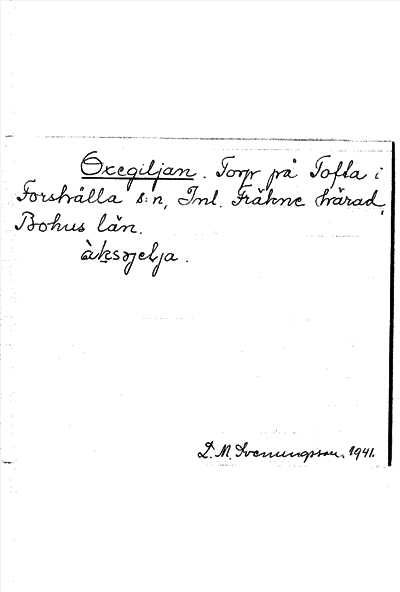 Oxegiljan. Torp på Tofta i
Forshälla s:n, Inl. Fräkne härad,
Bohus län.
àksəjelja.
D. M. Svenungsson. 1941.